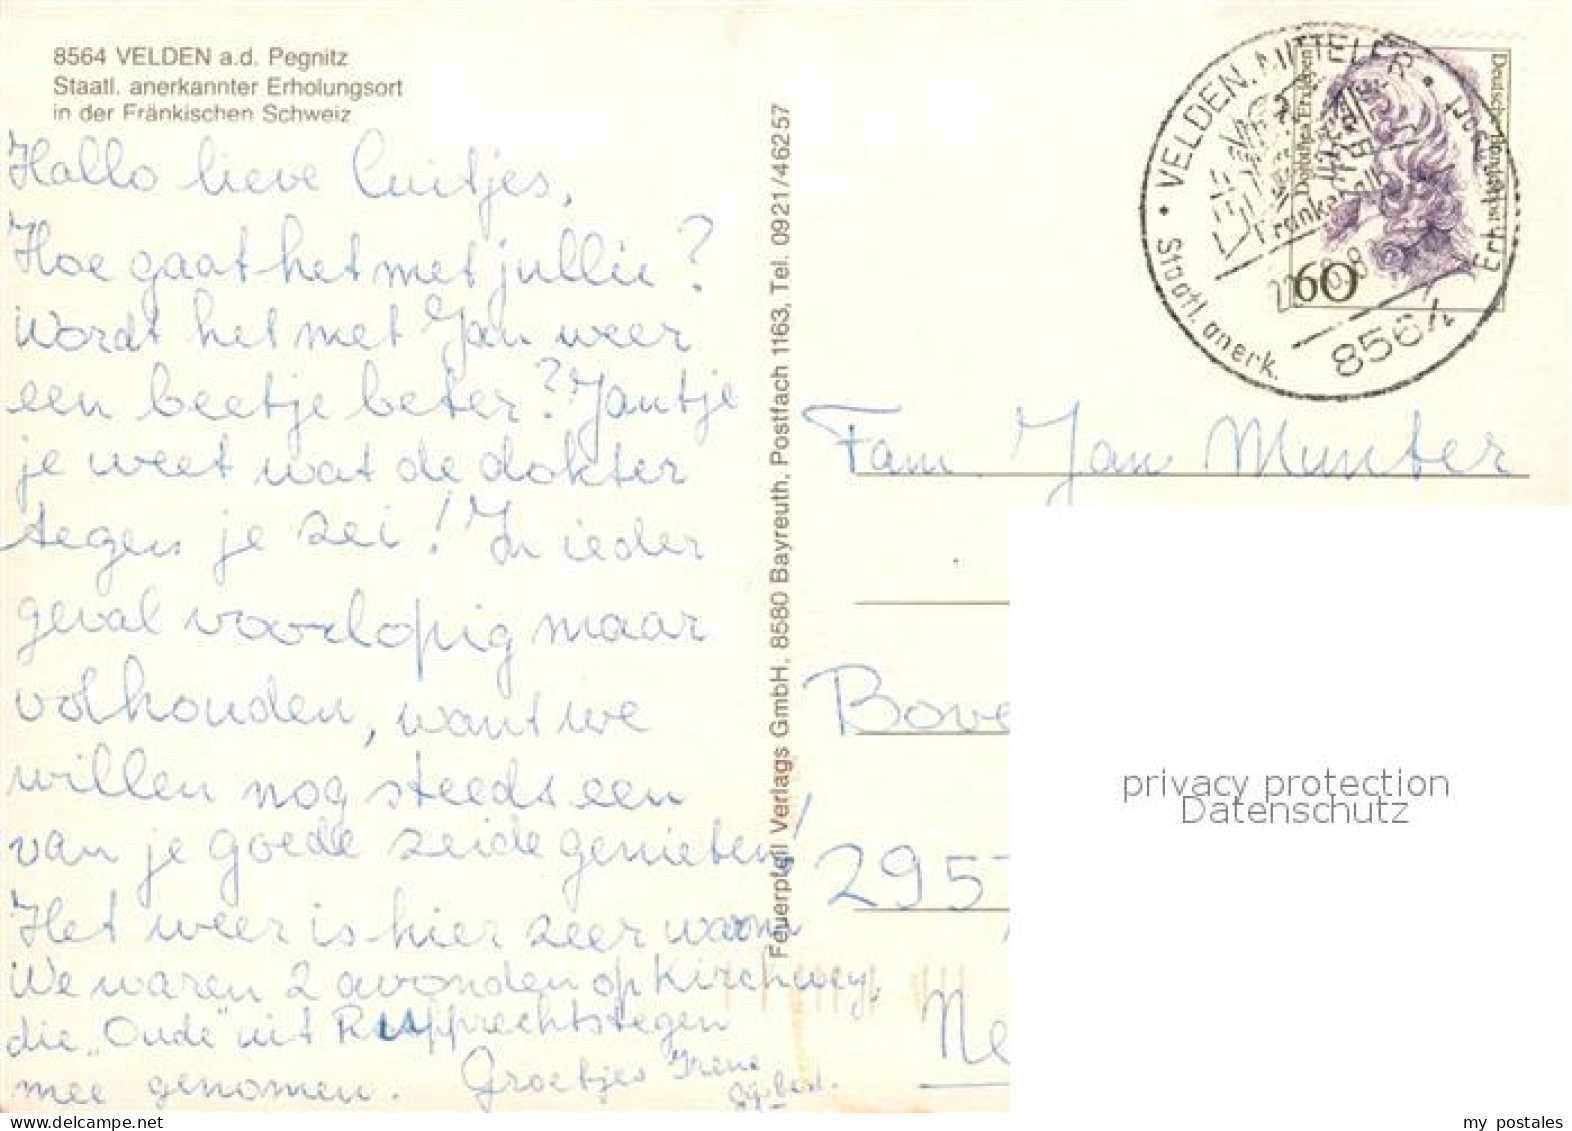 8564 VELDEN a.d. Pegnitz
Staatl. anerkannter Erholungsort
in der Fränkischen Schweiz
Hallo lieve luitjes,
Hoe gaat het met jullie?
Wordt het met Jan weer
een beetje beter? Jantje
je weet wat de dokter
tegen je zei! In ieder
geval voorlopig maar
volhouden, want we
willen nog steeds een
van je goede zeide genieten!
Het weer is hier zeer warm
We waren 2 avonden op Kirchwey,
die "Oude" uit Rupprechtstegen
mee genomen. Groetjes Irene
Feuerpfeil Verlags GmbH, 8580 Bayreuth, Postfach 1163, Tel. 0921/46257
VELDEN, MITTELFR.
Staatl. anerk. Erholungsort
8564
Deutsche Bundespost
Dorothea Erxleben
60
Fam. Jan Munter
Bove
295
Ne
privacy protection
Datenschutz
my postales